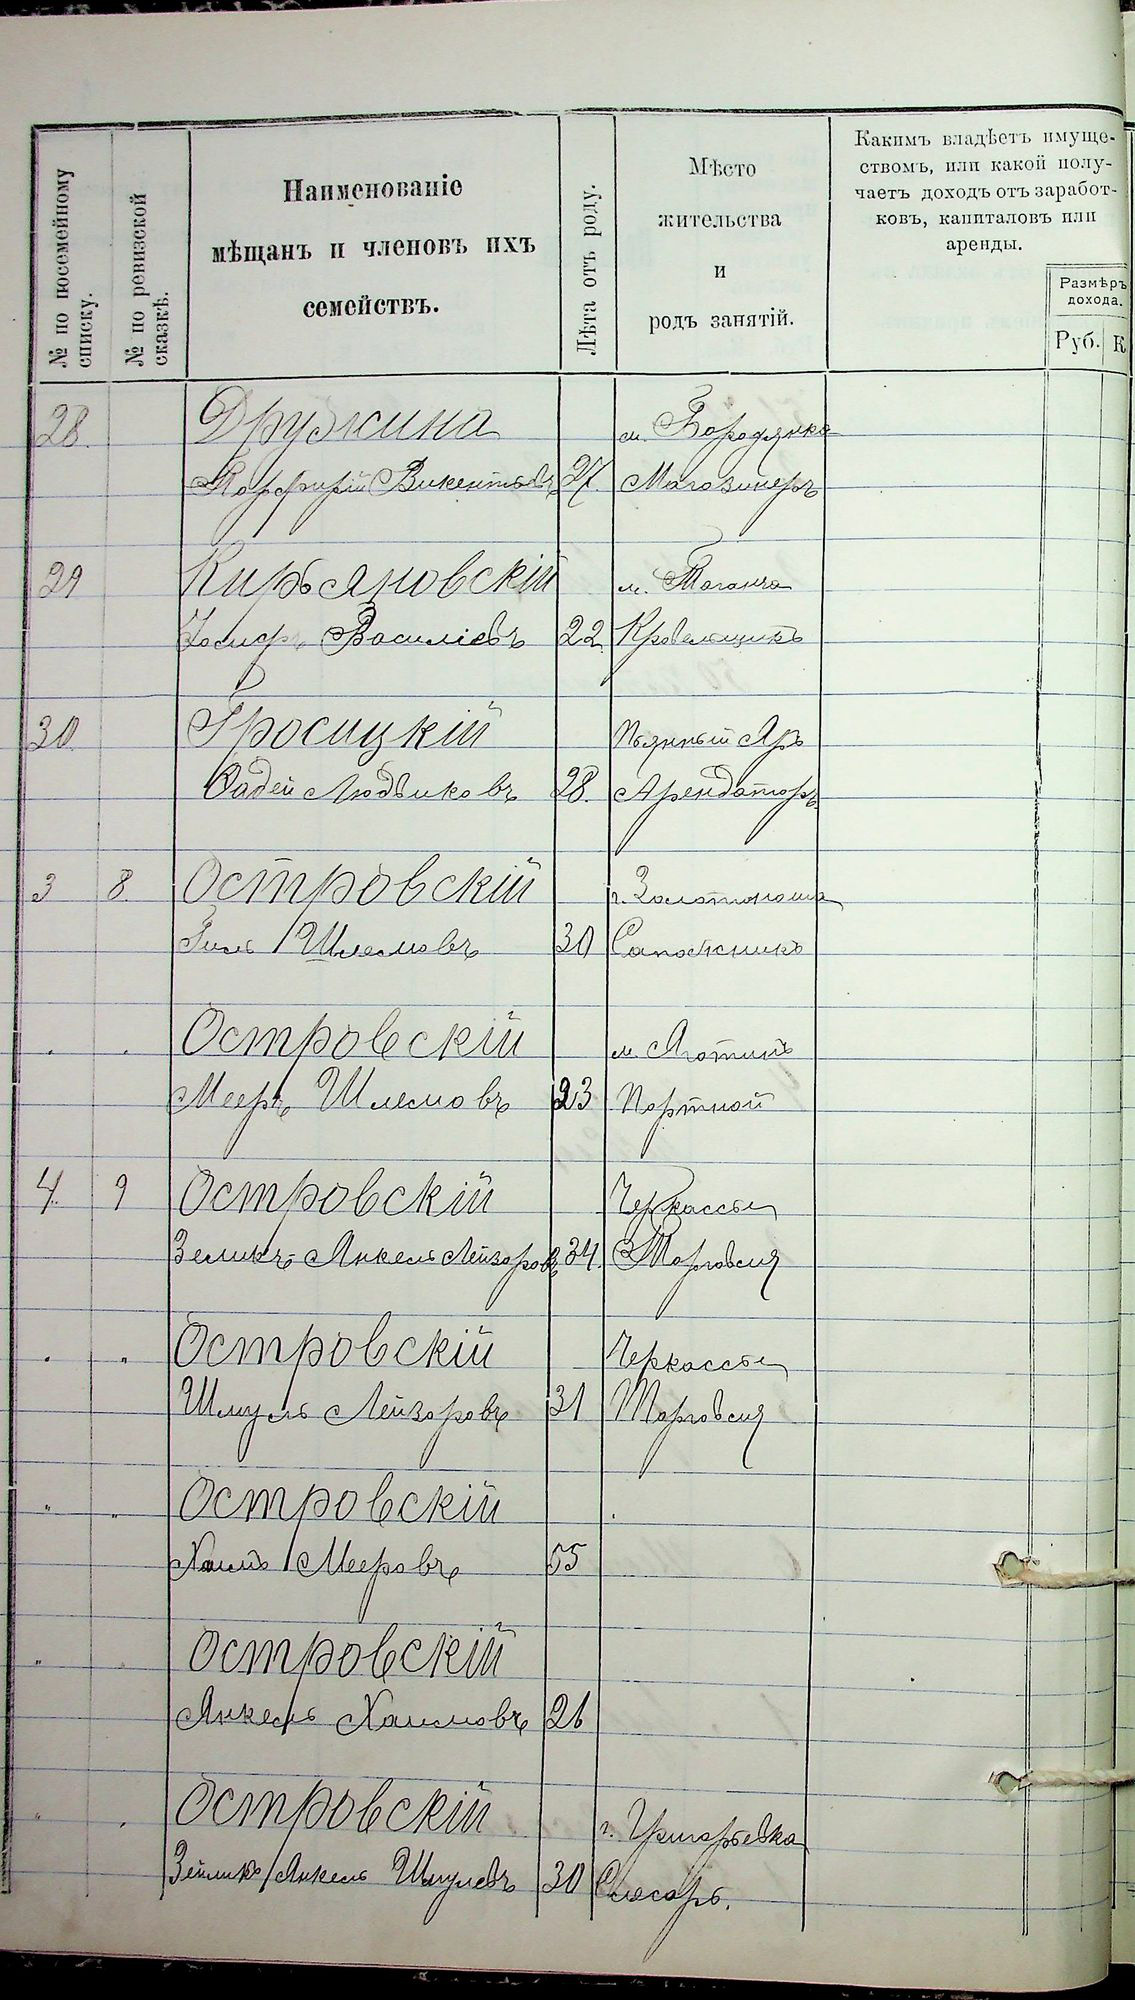 № по посемейному списку.
№ по ревизской сказкѣ.
Наименованіе
мѣщанъ и членовъ ихъ
семействъ.
Лѣта отъ роду.
Мѣсто
жительства
и
родъ занятій.
Какимъ владѣетъ имуще-
ствомъ, или какой полу-
чаетъ доходъ отъ заработ-
ковъ, капиталовъ или
аренды.
Размѣръ
дохода.
Руб. К
28. Дружина м. Бородянка
Порфирій Викентьевъ 27. Магазинеръ
29 Кирьяновскій м. Таганча
Іосифъ Василіевъ 22 Кровельщикъ
30 Гросицкій Пьянный Яръ
Фадей Людвиковъ 28. Арендаторъ
3 8. Островскій г. Золотоноша
Зиль Шлемовъ 30 Сапожникъ
. . Островскій м. Яготинъ
Мееръ Шлемовъ 23 Портной
4. 9 Островскій Черкассы
Зеликъ-Янкель Лейзоровъ 34. Торговля
. " Островскій Черкассы
Шмуль Лейзоровъ 31 Торговля
" " Островскій
Хаимъ Мееровъ 55
" . Островскій
Янкель Хаимовъ 26
" . Островскій г. Григорьевка
Зейликъ Янкель Шмулевъ 30 Слесарь.